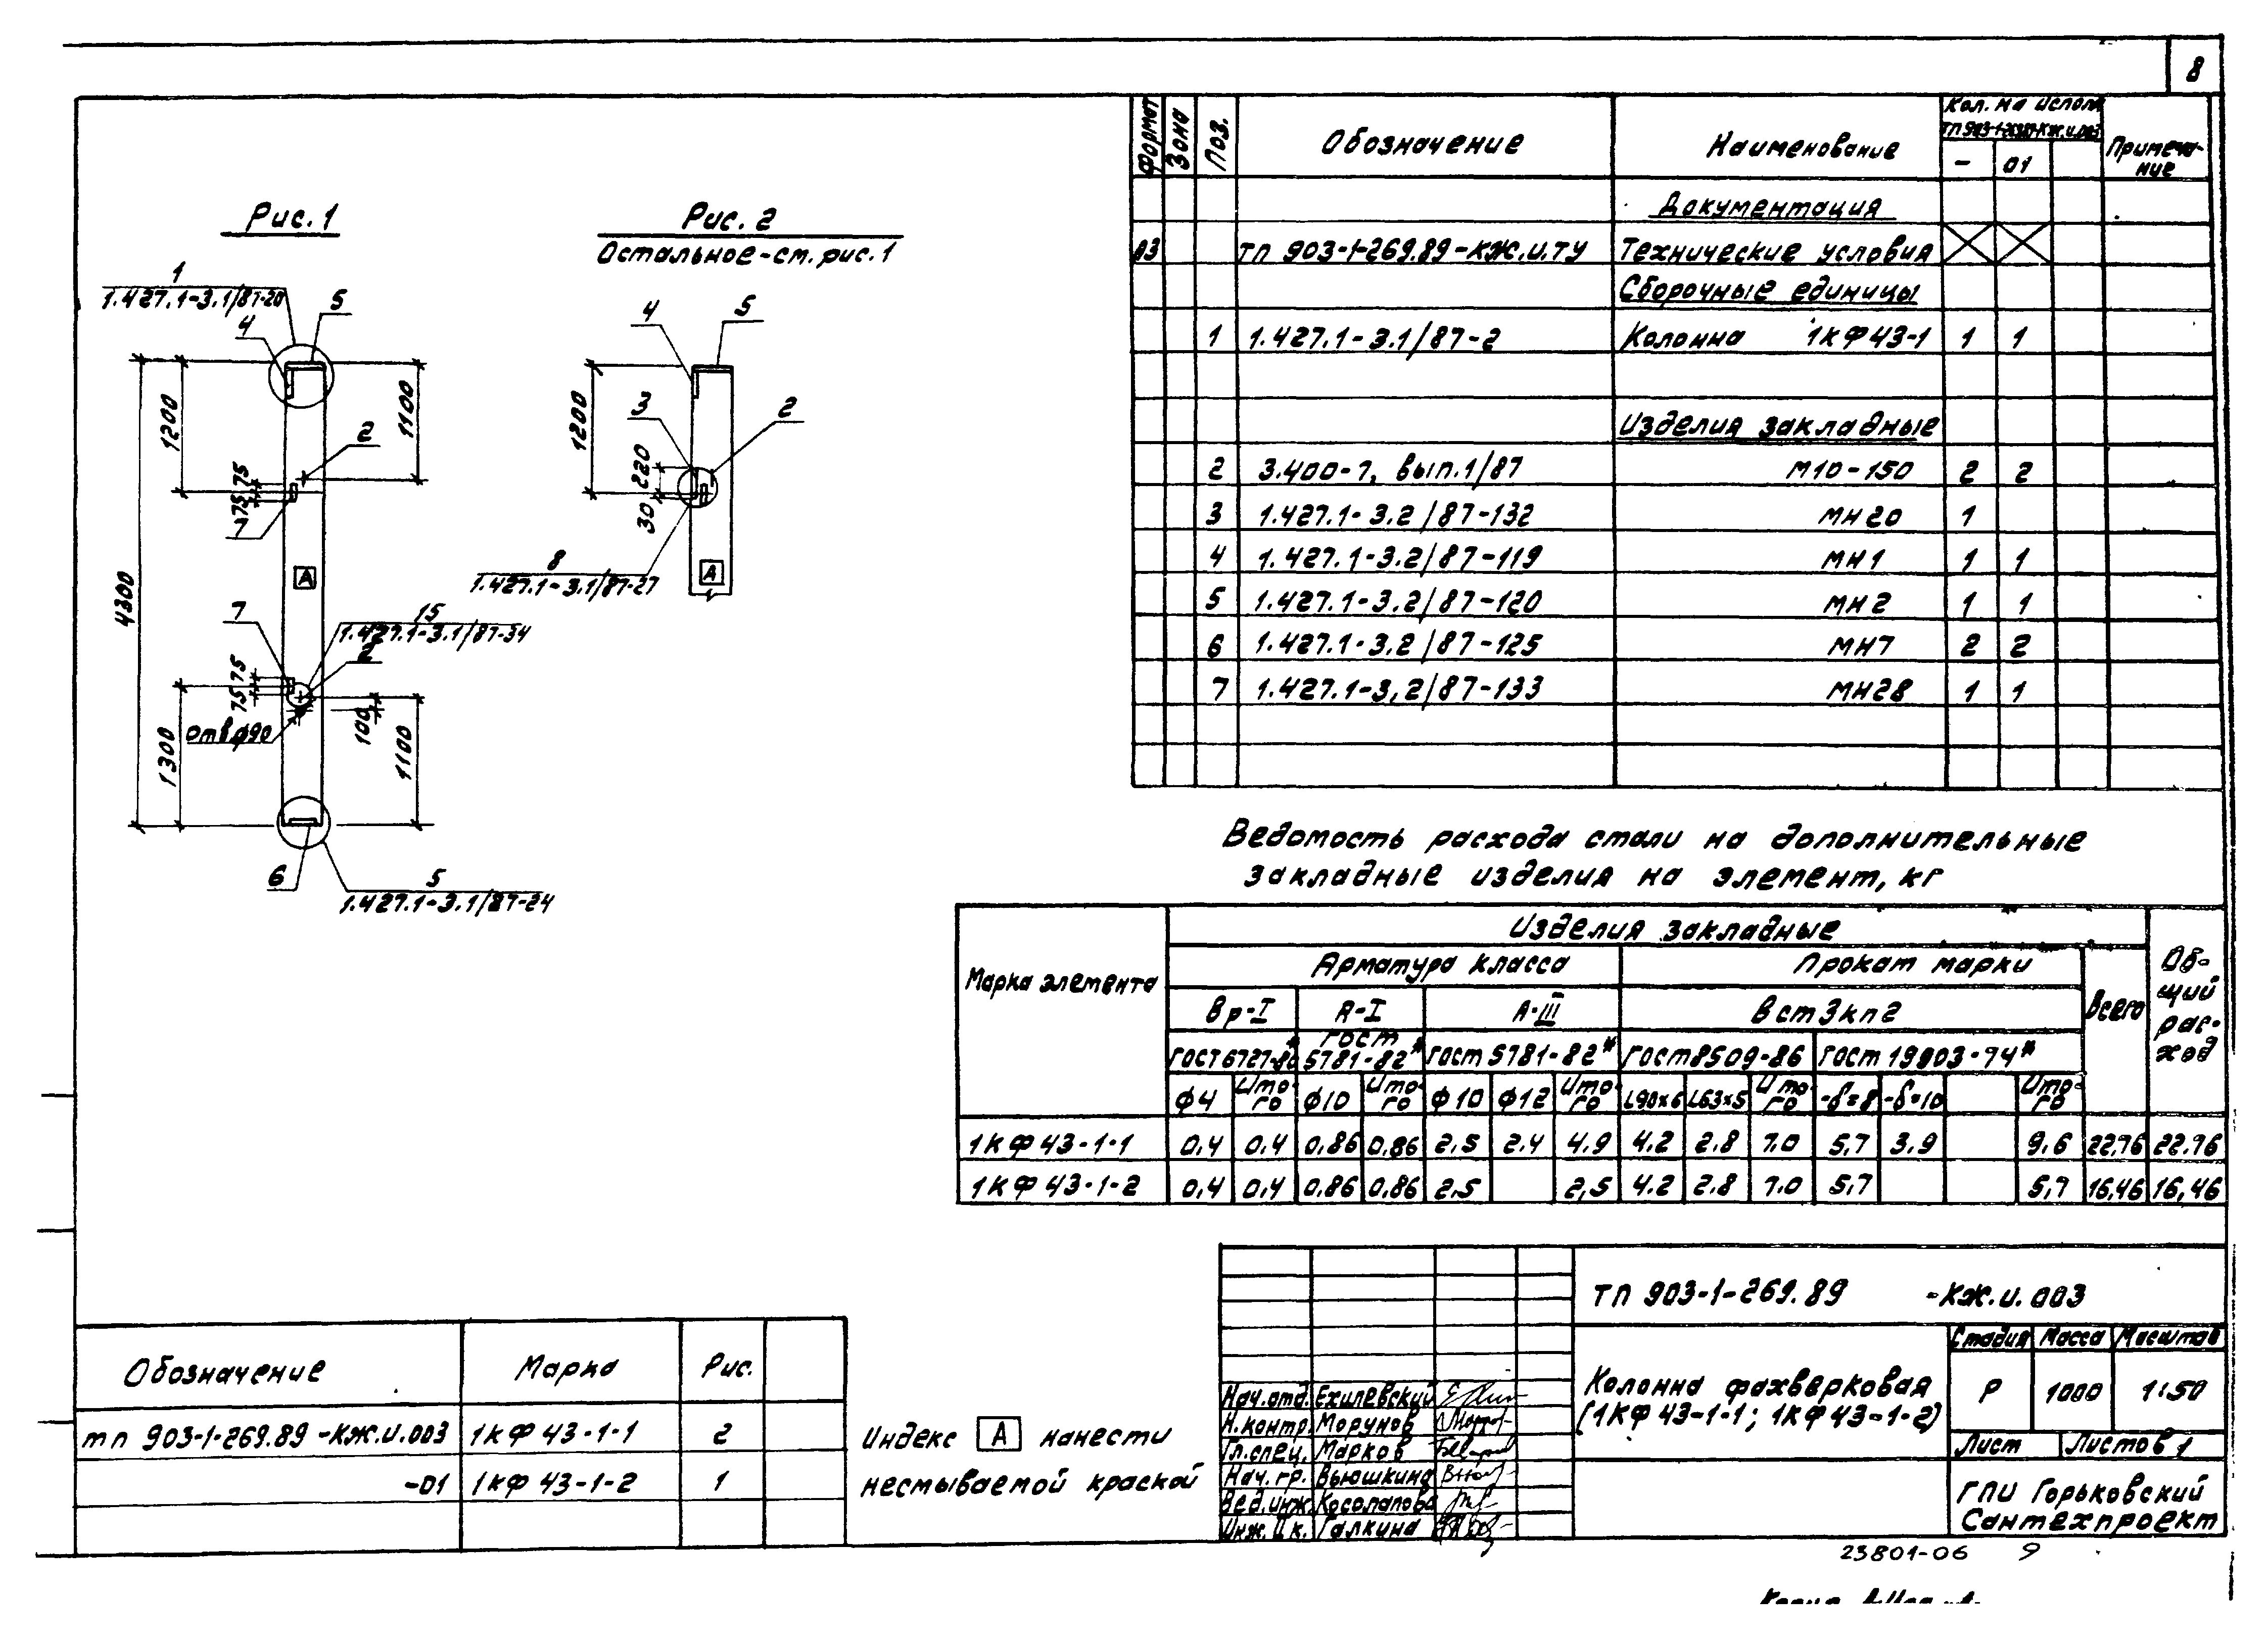 8
Рис. 1
Рис. 2
Остальное-см. рис. 1
1
1.427.1-3.1/87-20
5
4
1200
1100
2
75 75
7
4300
А
7
15
1.427.1-3.1/87-34
2
75 75
Отв.ф90
100
1300
1100
6
5
1.427.1-3.1/87-24
4
5
1200
3
2
220
30
8
1.427.1-3.1/87-27
А
Формат Зона Поз. Обозначение Наименование Кол. на исполн. Примеча-ние
- 01
Документация
А3 ТП 903-1-269.89-КЖ.И.ТУ Технические условия
Сборочные единицы
1 1.427.1-3.1/87-2 Колонна 1КФ43-1 1 1
Изделия закладные
2 3.400-7, вып.1/87 М10-150 2 2
3 1.427.1-3.2/87-132 МН20 1
4 1.427.1-3.2/87-119 МН1 1 1
5 1.427.1-3.2/87-120 МН2 1 1
6 1.427.1-3.2/87-125 МН7 2 2
7 1.427.1-3.2/87-133 МН28 1 1
Ведомость расхода стали на дополнительные
закладные изделия на элемент, кг
Марка элемента Изделия закладные Общий рас-ход
Арматура класса Прокат марки Всего
Вр-I А-I А-III ВСт3кп2
ГОСТ 6727-80* ГОСТ 5781-82* ГОСТ 5781-82* ГОСТ 8509-86 ГОСТ 19903-74*
ф4 Итого ф10 Итого ф10 ф12 Итого L90х6 L63х5 Итого -δ=8 -δ=10 Итого
1КФ43-1-1 0,4 0,4 0,86 0,86 2,5 2.4 4.9 4.2 2.8 7.0 5,7 3.9 9,6 22,76 22.76
1КФ43-1-2 0,4 0,4 0,86 0,86 2,5 2,5 4.2 2.8 7.0 5.7 5,7 16,46 16,46
Обозначение Марка Рис.
ТП 903-1-269.89-КЖ.И.003 1КФ43-1-1 2
-01 1КФ43-1-2 1
Индекс А нанести
несмываемой краской
ТП 903-1-269.89 -КЖ.И.003
Колонна фахверковая
(1КФ43-1-1; 1КФ43-1-2)
Стадия Масса Масштаб
Р 1000 1:50
Лист Листов 1
ГПИ Горьковский
Сантехпроект
Нач.отд. Ехилевский
Н.контр. Морунов
Гл.спец. Марков
Нач.гр. Вьюшкина
Вед.инж. Косолапова
Инж. II к. Галкина
23801-06 9